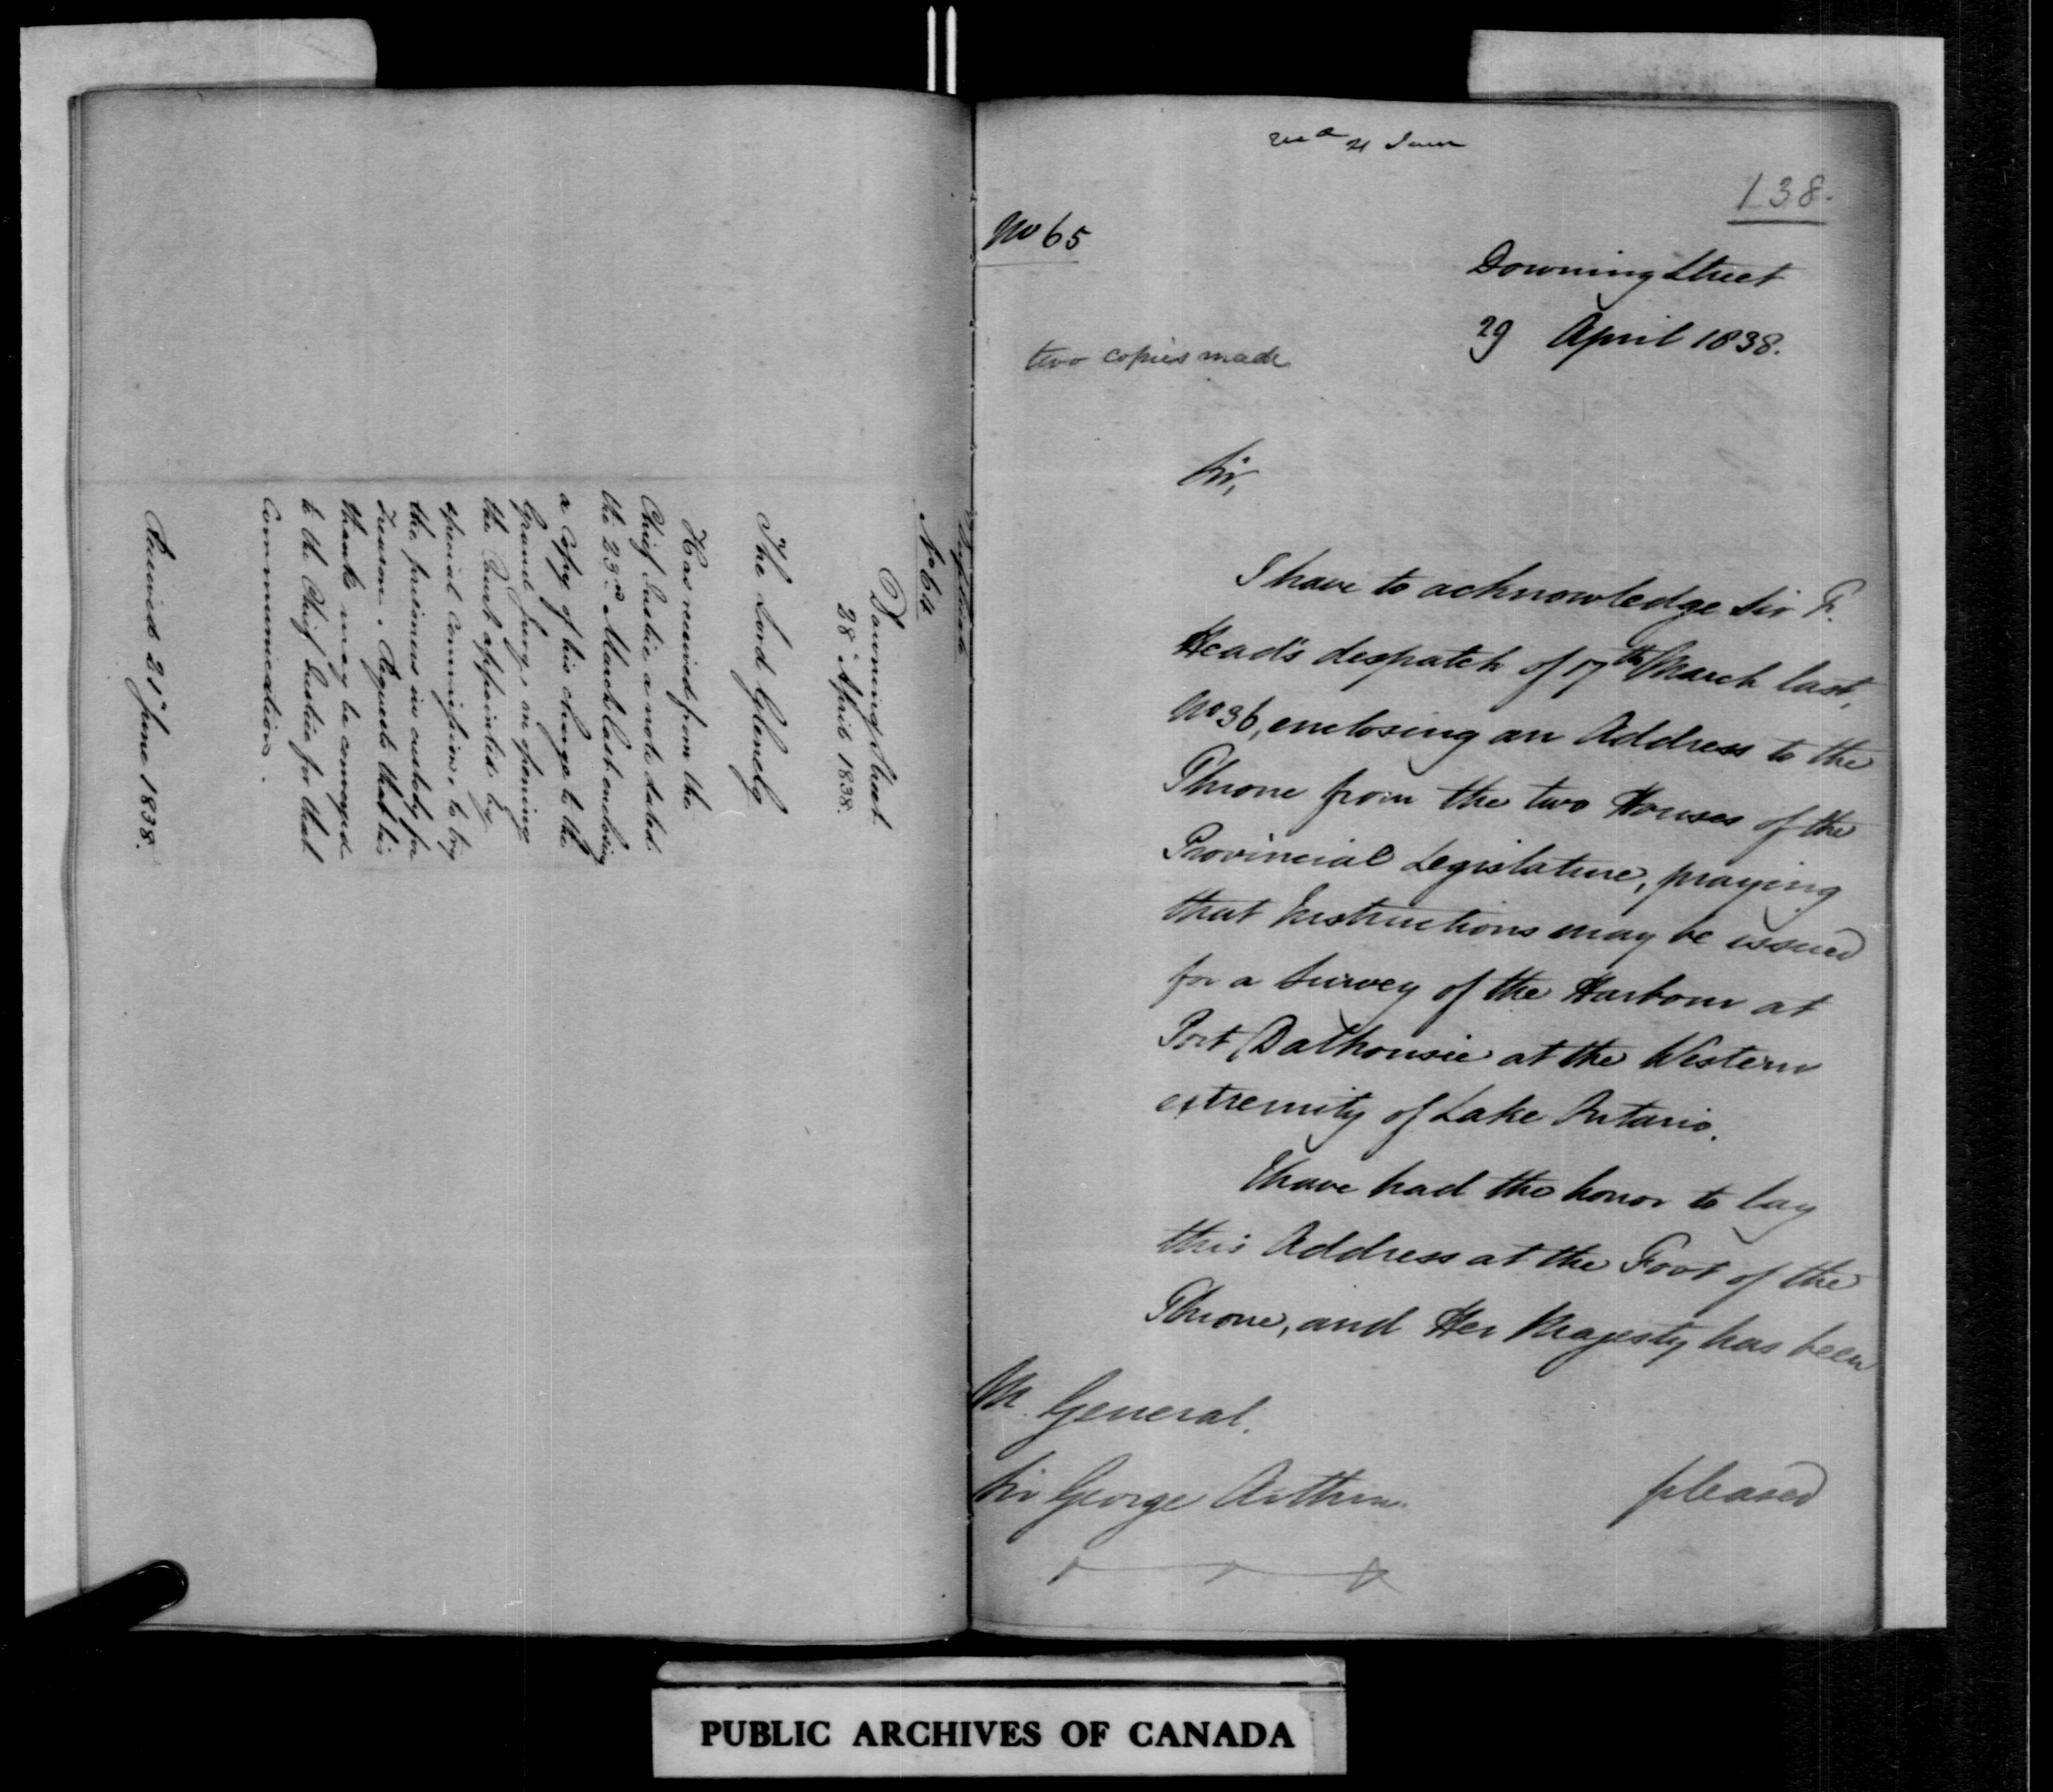 Duplicate
No 64
Downing Street
28 April 1838.
The Lord Glenelg
Has received from the
Chief Justice a note dated
the 23rd March last enclosing
a Copy of his charge to the
Grand Jury, on opening
the Court appointed by
special Commission, to try
the prisoners in custody for
Treason. Requests that his
thanks may be conveyed
to the Chief Justice for that
communication.
Received 21st June 1838.
21 June
138.
No 65
Downing Street
29 April 1838.
two copies made
Sir,
I have to acknowledge Sir F.
Head's despatch of 17th March last,
No 36, enclosing an Address to the
Throne from the two Houses of the
Provincial Legislature, praying
that Instructions may be issued
for a Survey of the Harbour at
Port Dalhousie at the Western
extremity of Lake Ontario.
I have had the honor to lay
this Address at the Foot of the
Throne, and Her Majesty has been
M. General.
Sir George Arthur.
pleased
PUBLIC ARCHIVES OF CANADA